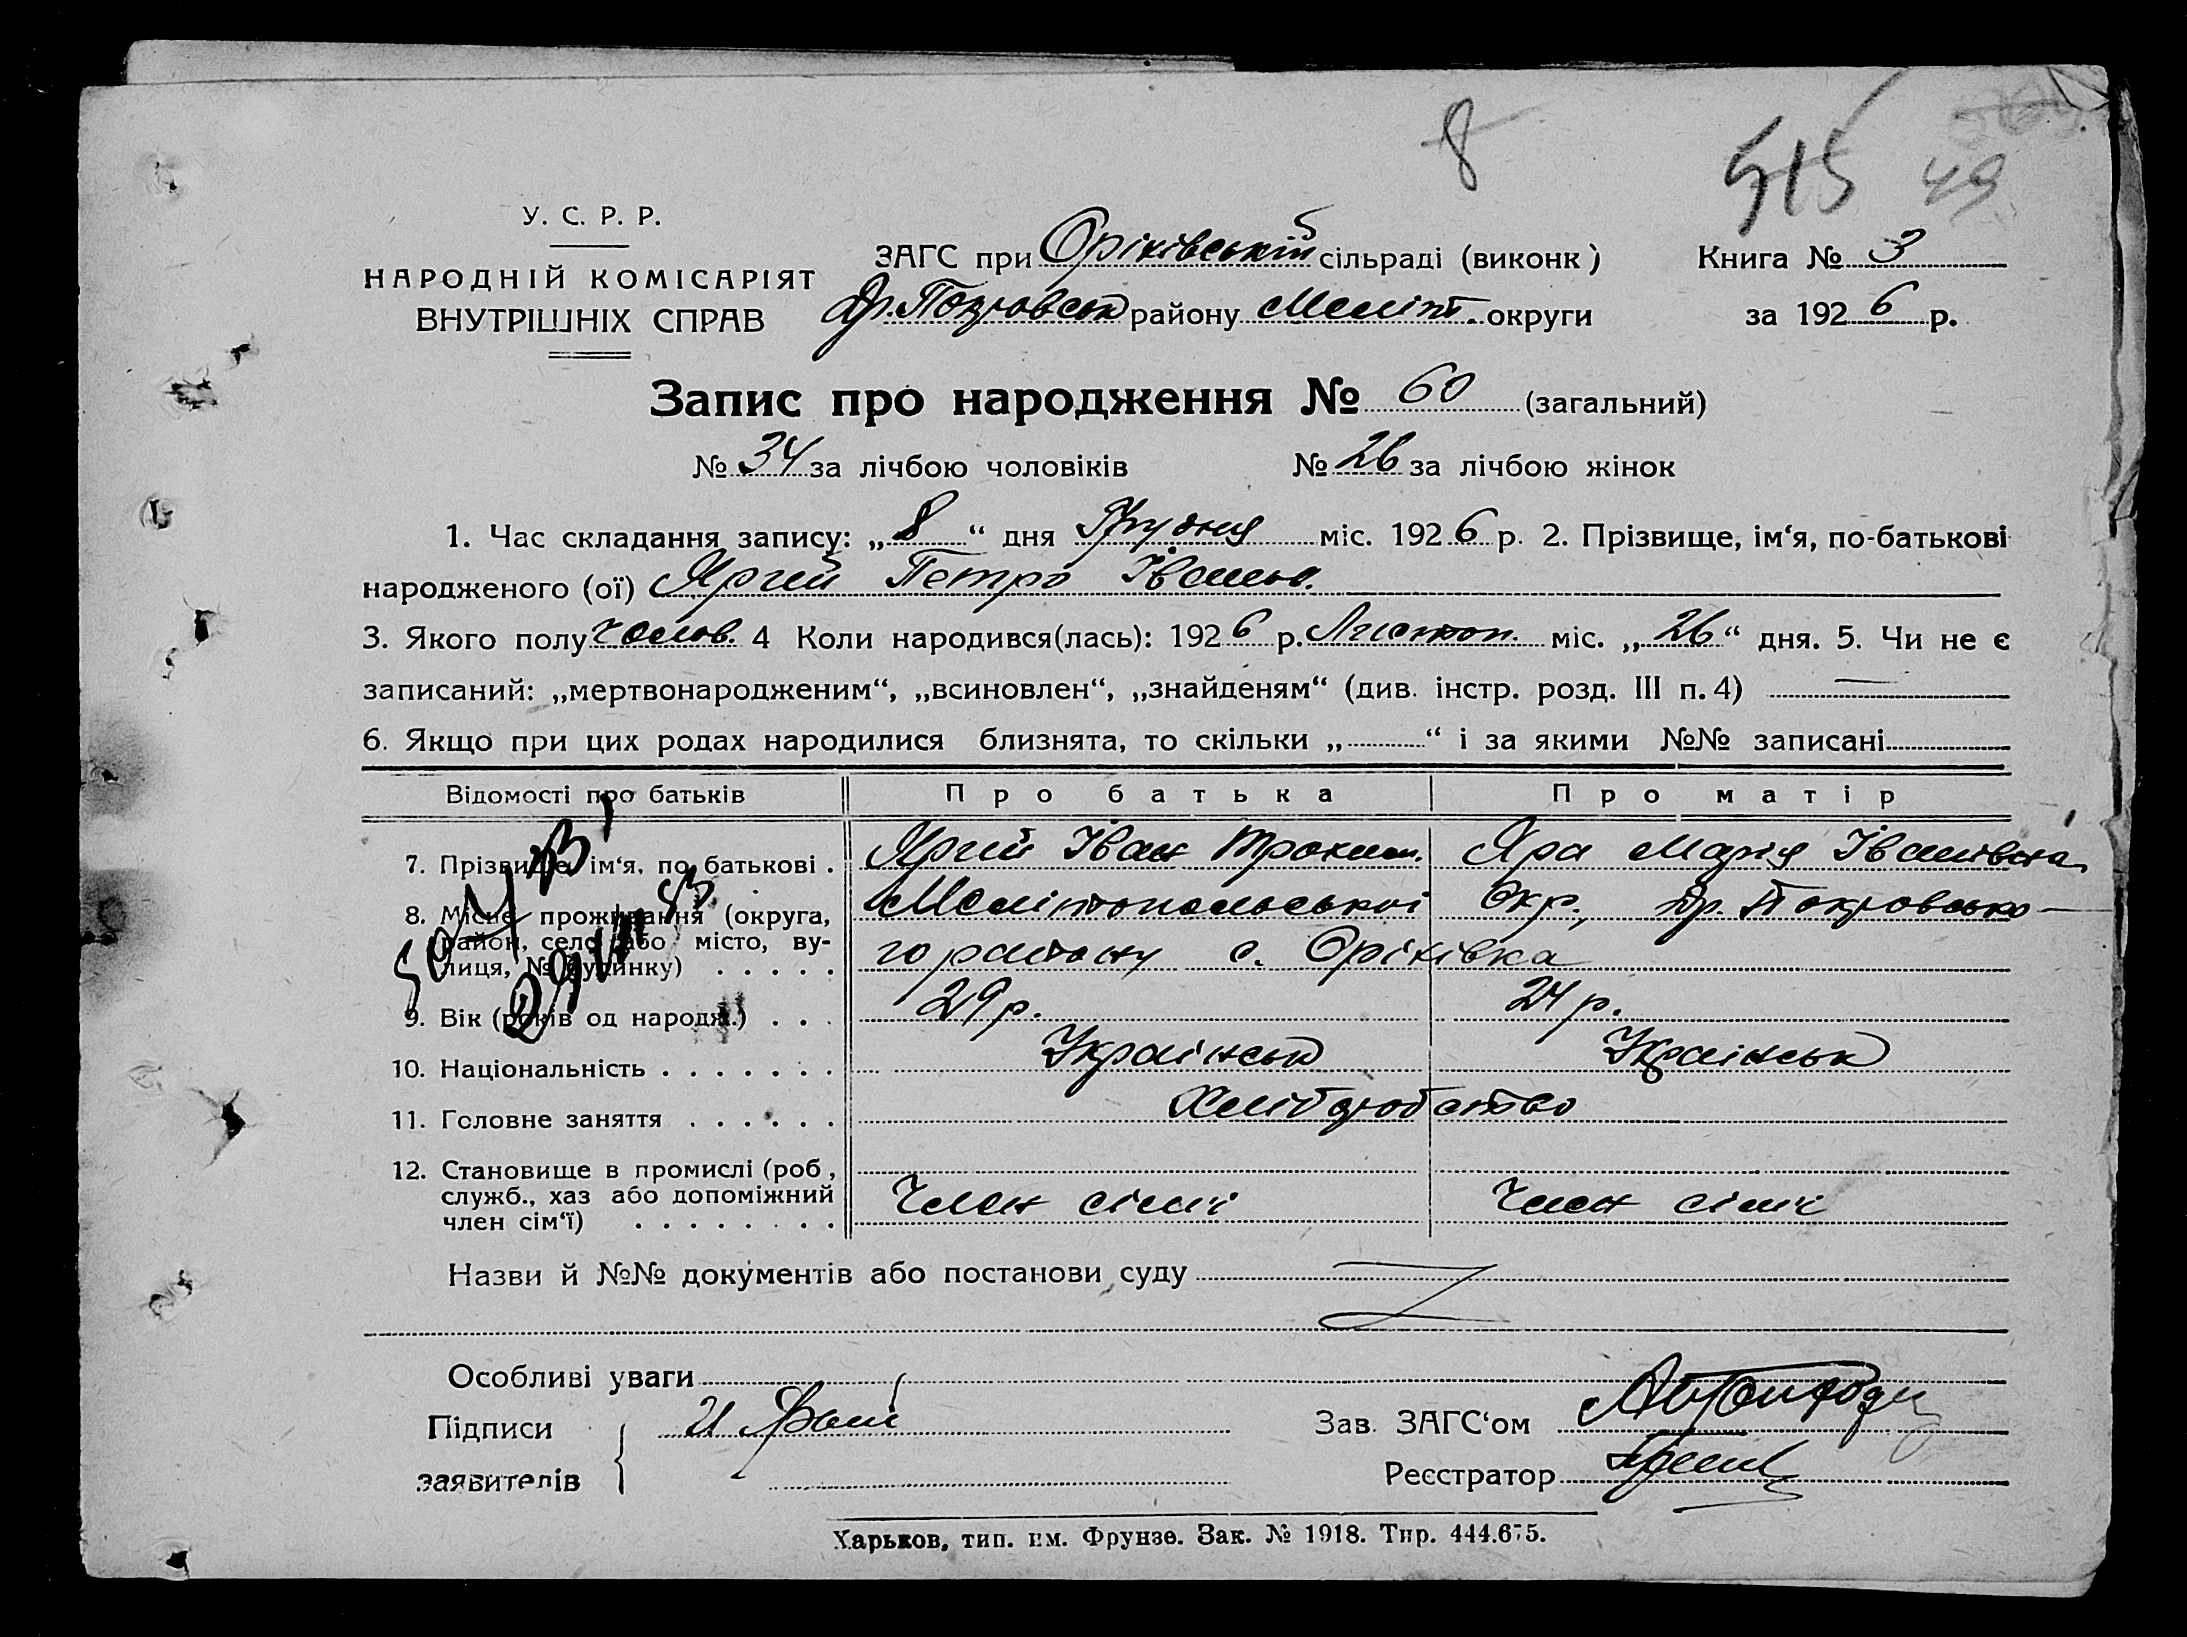 8
515 49
У. С. Р. Р.
НАРОДНІЙ КОМІСАРІЯТ
ВНУТРІШНІХ СПРАВ
ЗАГС при Оріхівській сільраді (виконк) Книга № 3
Др. Покровськ району Меліт. округи за 1926 р.
Запис про народження № 60 (загальний)
№ 34 за лічбою чоловіків № 26 за лічбою жінок
1. Час складання запису: „8“ дня Грудня міс. 1926 р. 2. Прізвище, ім‘я, по-батькові
народженого (ої) Ярий Петро Іванов.
3. Якого полу Чолов. 4 Коли народився(лась): 1926 р. Листоп. міс. „26“ дня. 5. Чи не є
записаний: „мертвонародженим“, „всиновлен“, „знайденям“ (див. інстр. розд. III п. 4) —
6. Якщо при цих родах народилися близнята, то скільки „ “ і за якими №№ записані
Відомості про батьків Про батька Про матір
7. Прізвище, ім‘я, по батькові . Ярий Іван Трохим. Яра Марія Іванівна
8. Місце проживання (округа, район, село або місто, вулиця, № будинку) . . . . . Мелітопольської Окр., Др. Покровсько-
го району с. Оріхівка
9. Вік (років од народж.) . . . 29 р. 24 р.
10. Національність . . . . . . . Українськ Українськ
11. Головне заняття . . . . . . Хліборобство
12. Становище в промислі (роб.,
служб., хаз або допоміжний
член сім‘ї) . . . . . . . . Член сімї Член сімї
Назви й №№ документів або постанови суду
Особливі уваги
Підписи
заявителів
И
Зав. ЗАГС‘ом
Реєстратор
Харьков, тип. им. Фрунзе. Зак. № 1918. Тир. 444.675.